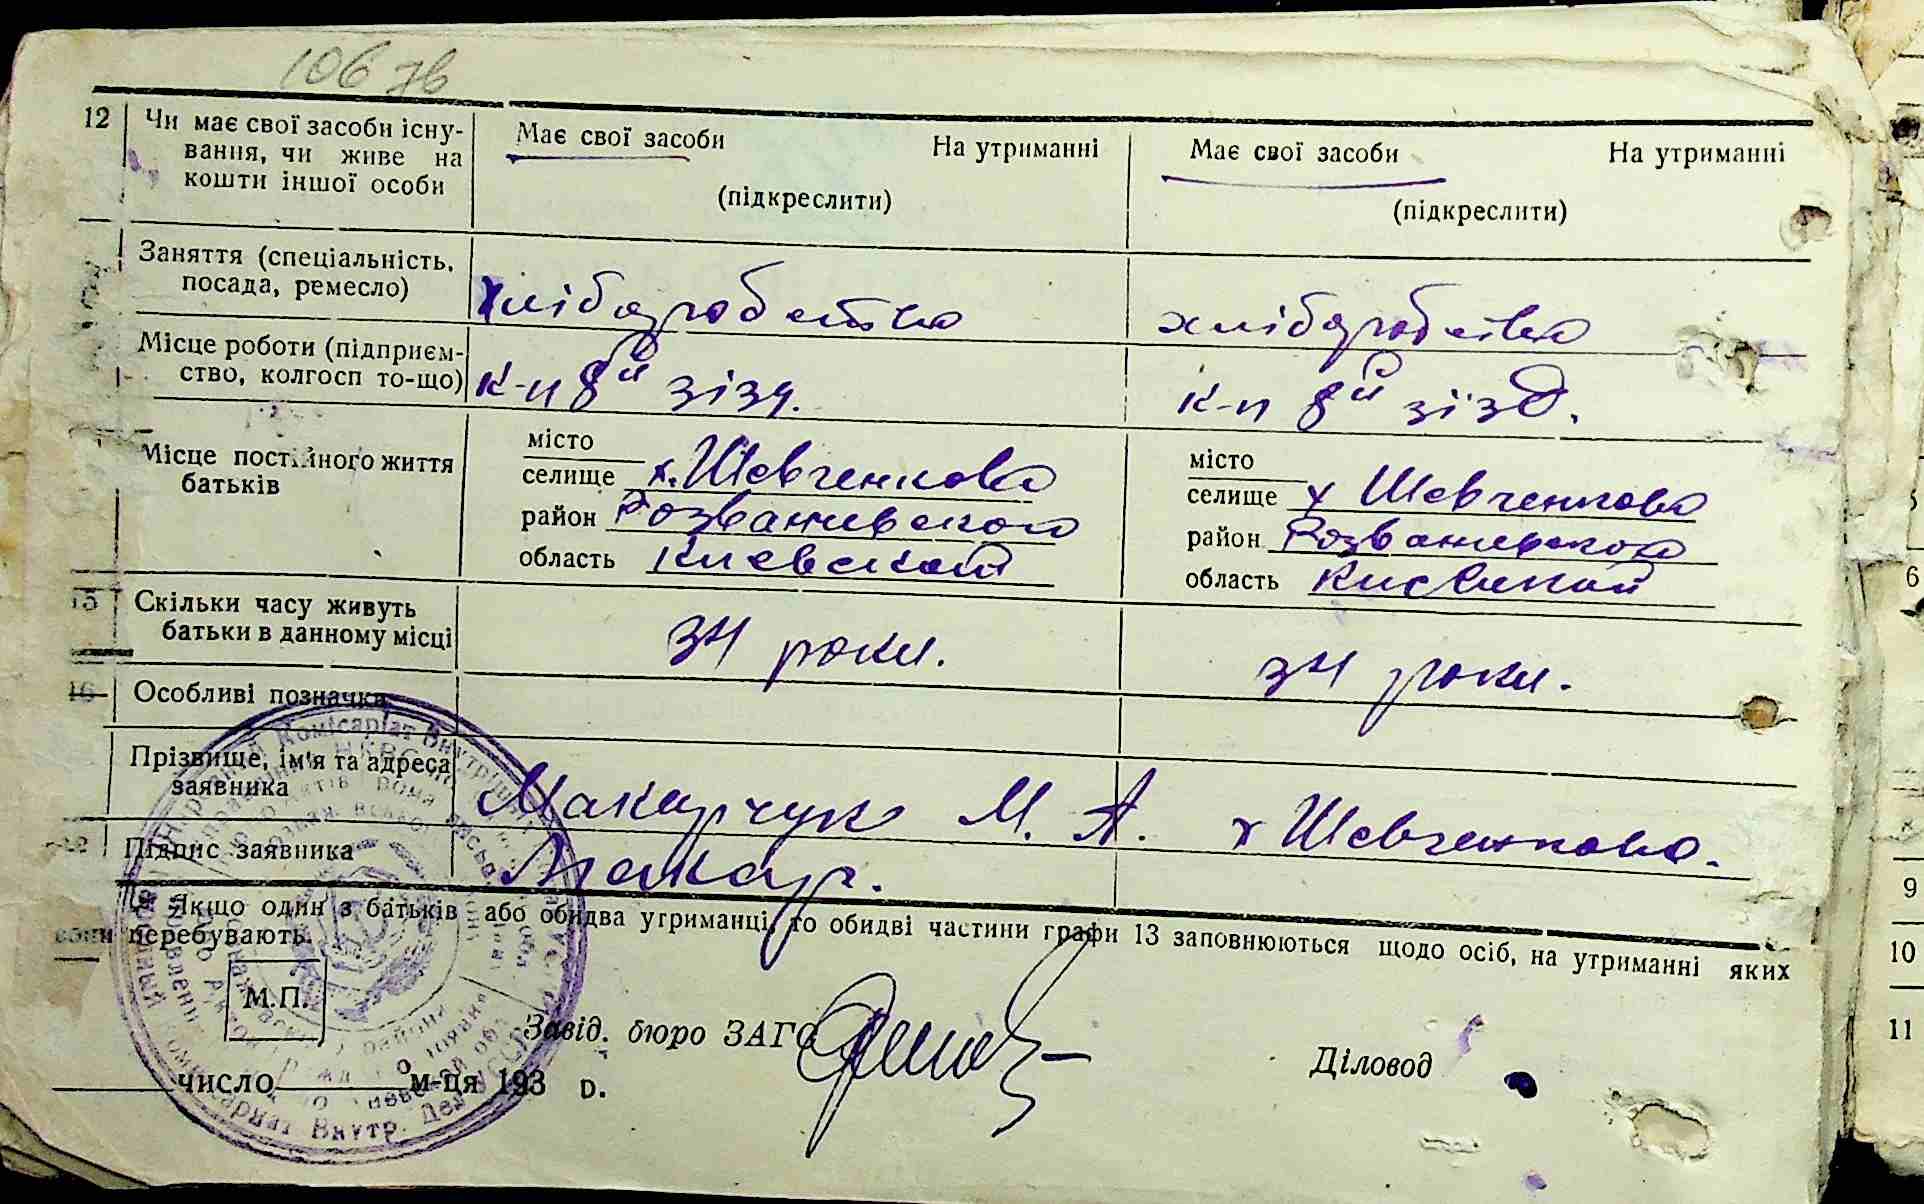 106 зв
12 Чи має свої засоби існу- Має свої засоби На утриманні Має свої засоби На утриманні
вання, чи живе на
кошти іншої особи (підкреслити) (підкреслити)
Заняття (спеціальність,
посада, ремесло) хліборобство хліборобство
Місце роботи (підприєм-
ство, колгосп то-що) к-п 8й зізд. к-п 8й зізд.
Місце постійного життя
батьків
місто місто
селище х. Шевченково селище х Шевченково
район Розважевского район Розважевского
область Киевской область Киевской
15 Скільки часу живуть
батьки в данному місці 34 роки. 34 роки.
16 Особливі позначка
Прізвище, ім'я та адреса
заявника Макарчук М. А. х Шевченково.
Підпис заявника Макарч.
Якщо один з батьків або обидва утриманці, то обидві частини графи 13 заповнюються щодо осіб, на утриманні яких
вони перебувають.
М.П.
Завід. бюро ЗАГС
Діловод
число м-ця 193 р.
6
9
10
11